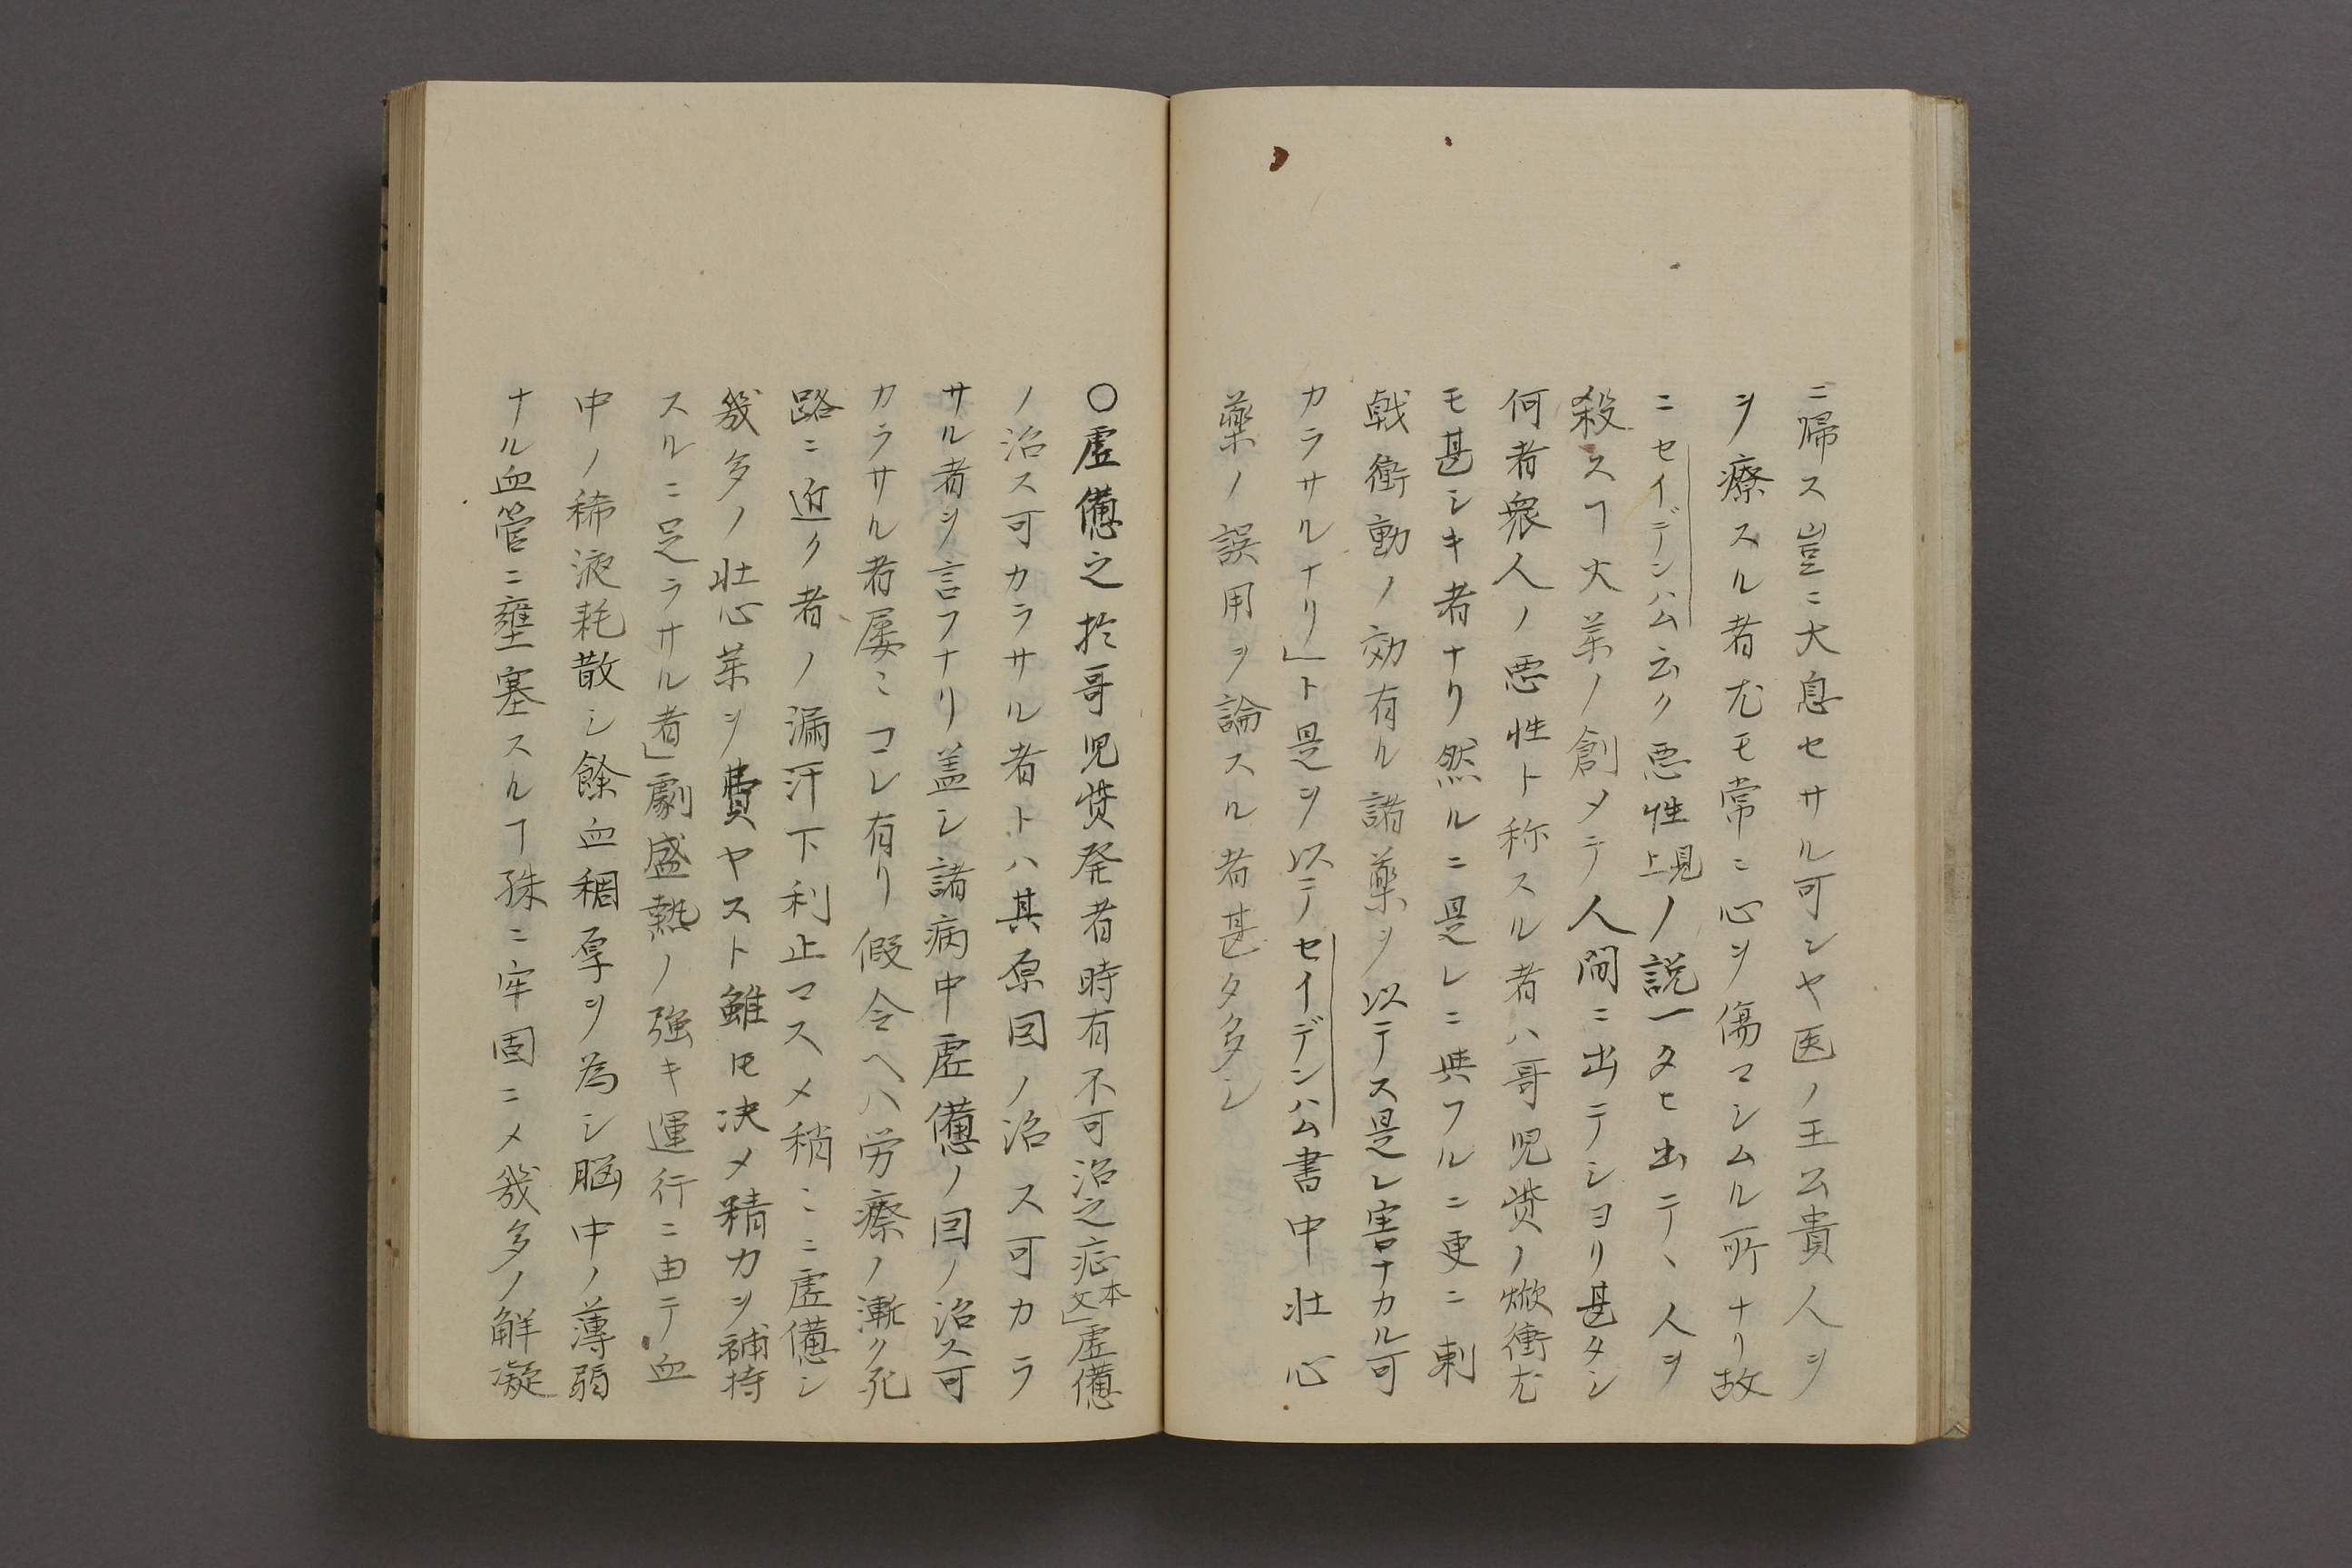 ニ帰ス豈ニ大息セサル可ンヤ医ノ王公貴人ヲ
ヲ療スル者尤モ常ニ心ヲ傷マシムル所ナリ故
ニセイデンハム云ク悪性見上ノ説一タヒ出テヽ人ヲ
殺スヿ火茱ノ創メテ人間ニ出テシヨリ甚タシ
何者衆人ノ悪性ト称スル者ハ哥児発ノ焮衝尤
モ甚シキ者ナリ然ルニ是レニ與フルニ更ニ刺
戟衝動ノ効有ル諸薬ヲ以テス是レ害ナカル可
カラサルナリ」ト是ヲ以テセイデンハム書中壮心
薬ノ誤用ヲ論スル者甚タ多シ
〇虚憊之於哥児発者時有不可治之症本文」虚憊
ノ治ス可カラサル者トハ其原因ノ治ス可カラ
サル者ヲ言フナリ盖シ諸病中虚憊ノ因ノ治ス可
カラサル者屡〻コレ有リ假令ヘハ労瘵ノ漸ク死
路ニ近ク者ノ漏汗下利止マスメ稍〻ニ虚憊シ
幾多ノ壮心茱ヲ費ヤスト雖ㇶ決メ精力ヲ補持
スルニ足ラサル者」劇盛熱ノ強キ運行ニ由テ血
中ノ稀液耗散シ餘血稠厚ヲ為シ脳中ノ薄弱
ナル血管ニ壅塞スルヿ殊ニ牢固ニメ幾多ノ解凝